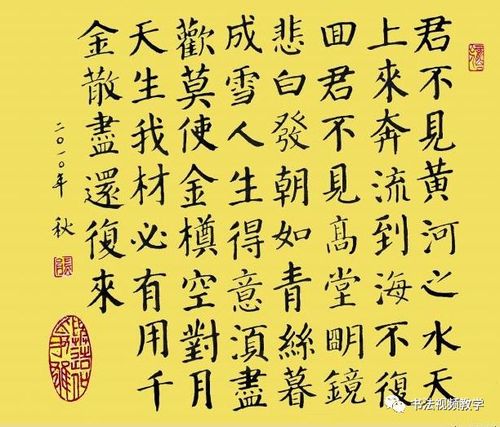 君不見黃河之水天
上來奔流到海不復
囬君不見髙堂眀鏡
悲白發朝如青絲暮
成雪人生得意須盡
歡莫使金樽空對月
天生我材必有用千
金散盡還復來
二〇一〇年 秋
书法视频教学